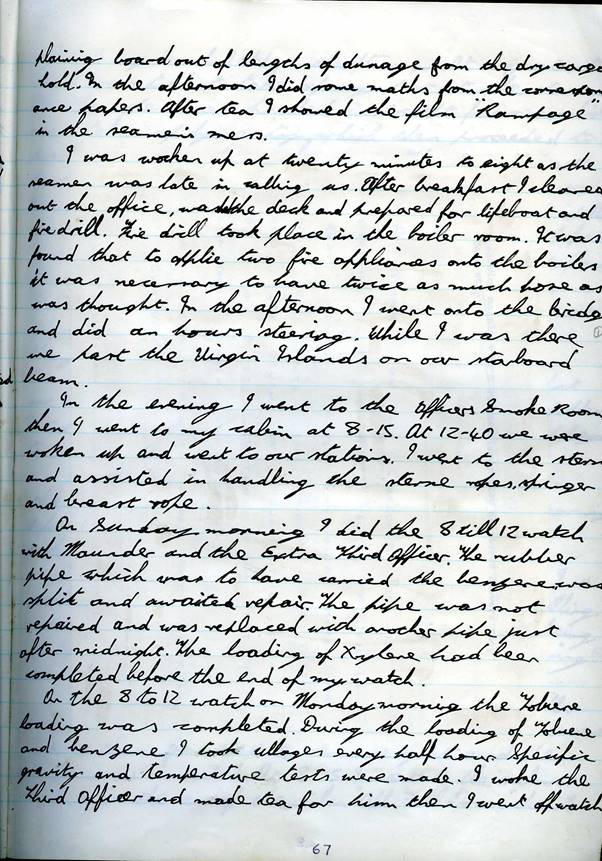 plaining board out of lengths of dunage from the dry cargo
hold. In the afternoon I did some maths from the correspon
ance papers. After tea I showed the film "Rampage"
in the seamen's mess.
I was woken up at twenty minutes to eight as the
seamen was late in calling us. After breakfast I cleaned
out the office, washed the deck and prepared for lifeboat and
fire drill. Fire drill took place in the boiler room. It was
found that to applie two fire appliances onto the boilers
it was necessary to have twice as much hose as
was thought. In the afternoon I went onto the bridge
and did an hours steering. While I was there
we past the Virgin Islands on our starboard
beam.
In the evening I went to the Officers Smoke Room
then I went to my cabin at 8-15. At 12-40 we were
woken up and went to our stations. I went to the stern
and assisted in handling the sterne ropes, springer
and breast rope.
On Sunday morning I did the 8 till 12 watch
with Maunder and the Extra Third Officer. The rubber
pipe which was to have carried the benzene was
split and awaited repair. The pipe was not
repaired and was replaced with another pipe just
after midnight. The loading of Xylene had been
completed before the end of my watch.
On the 8 to 12 watch on Monday morning the Toluene
loading was completed. During the loading of Toluene
and benzene I took ullages every half hour. Specific
gravity and temperature tests were made. I woke the
Third Officer and made tea for him then I went off watch
67